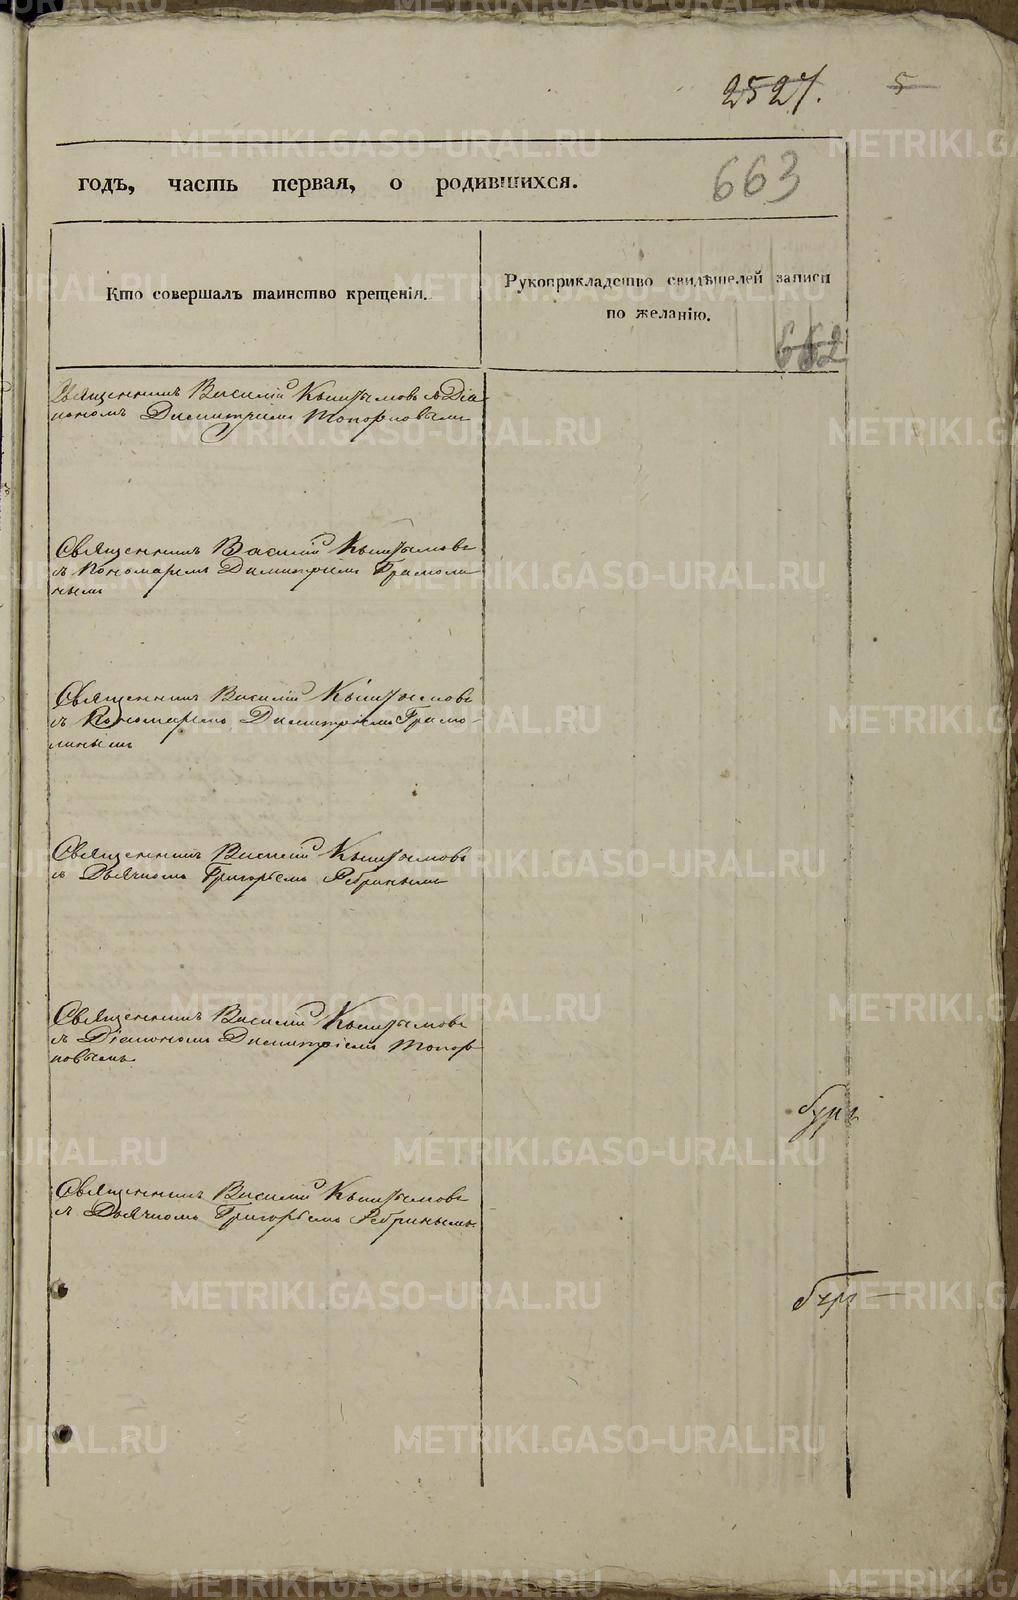 2527.
5
годъ, часть первая, о родившихся.
663
Кто совершалъ таинство крещенія.
Рукоприкладство свидѣтелей записи
по желанію.
662
Священникъ Василій Кыштымовъ съ Діа-
кономъ Димитріемъ Топорковымъ
Священникъ Василій Кыштымовъ
съ Пономаремъ Димитріемъ Грамоли
нымъ
Священникъ Василій Кыштымовъ
съ Пономаремъ Димитріемъ Грамо-
линымъ
Священникъ Василій Кыштымовъ
съ Дьячкомъ Григорьемъ Ребринымъ
Священникъ Василій Кыштымовъ
съ Діакономъ Димитріемъ Топор
ковымъ.
Священникъ Василій Кыштымовъ
съ Дьячкомъ Григорьемъ Ребринымъ.
METRIKI.GASO-URAL.RU